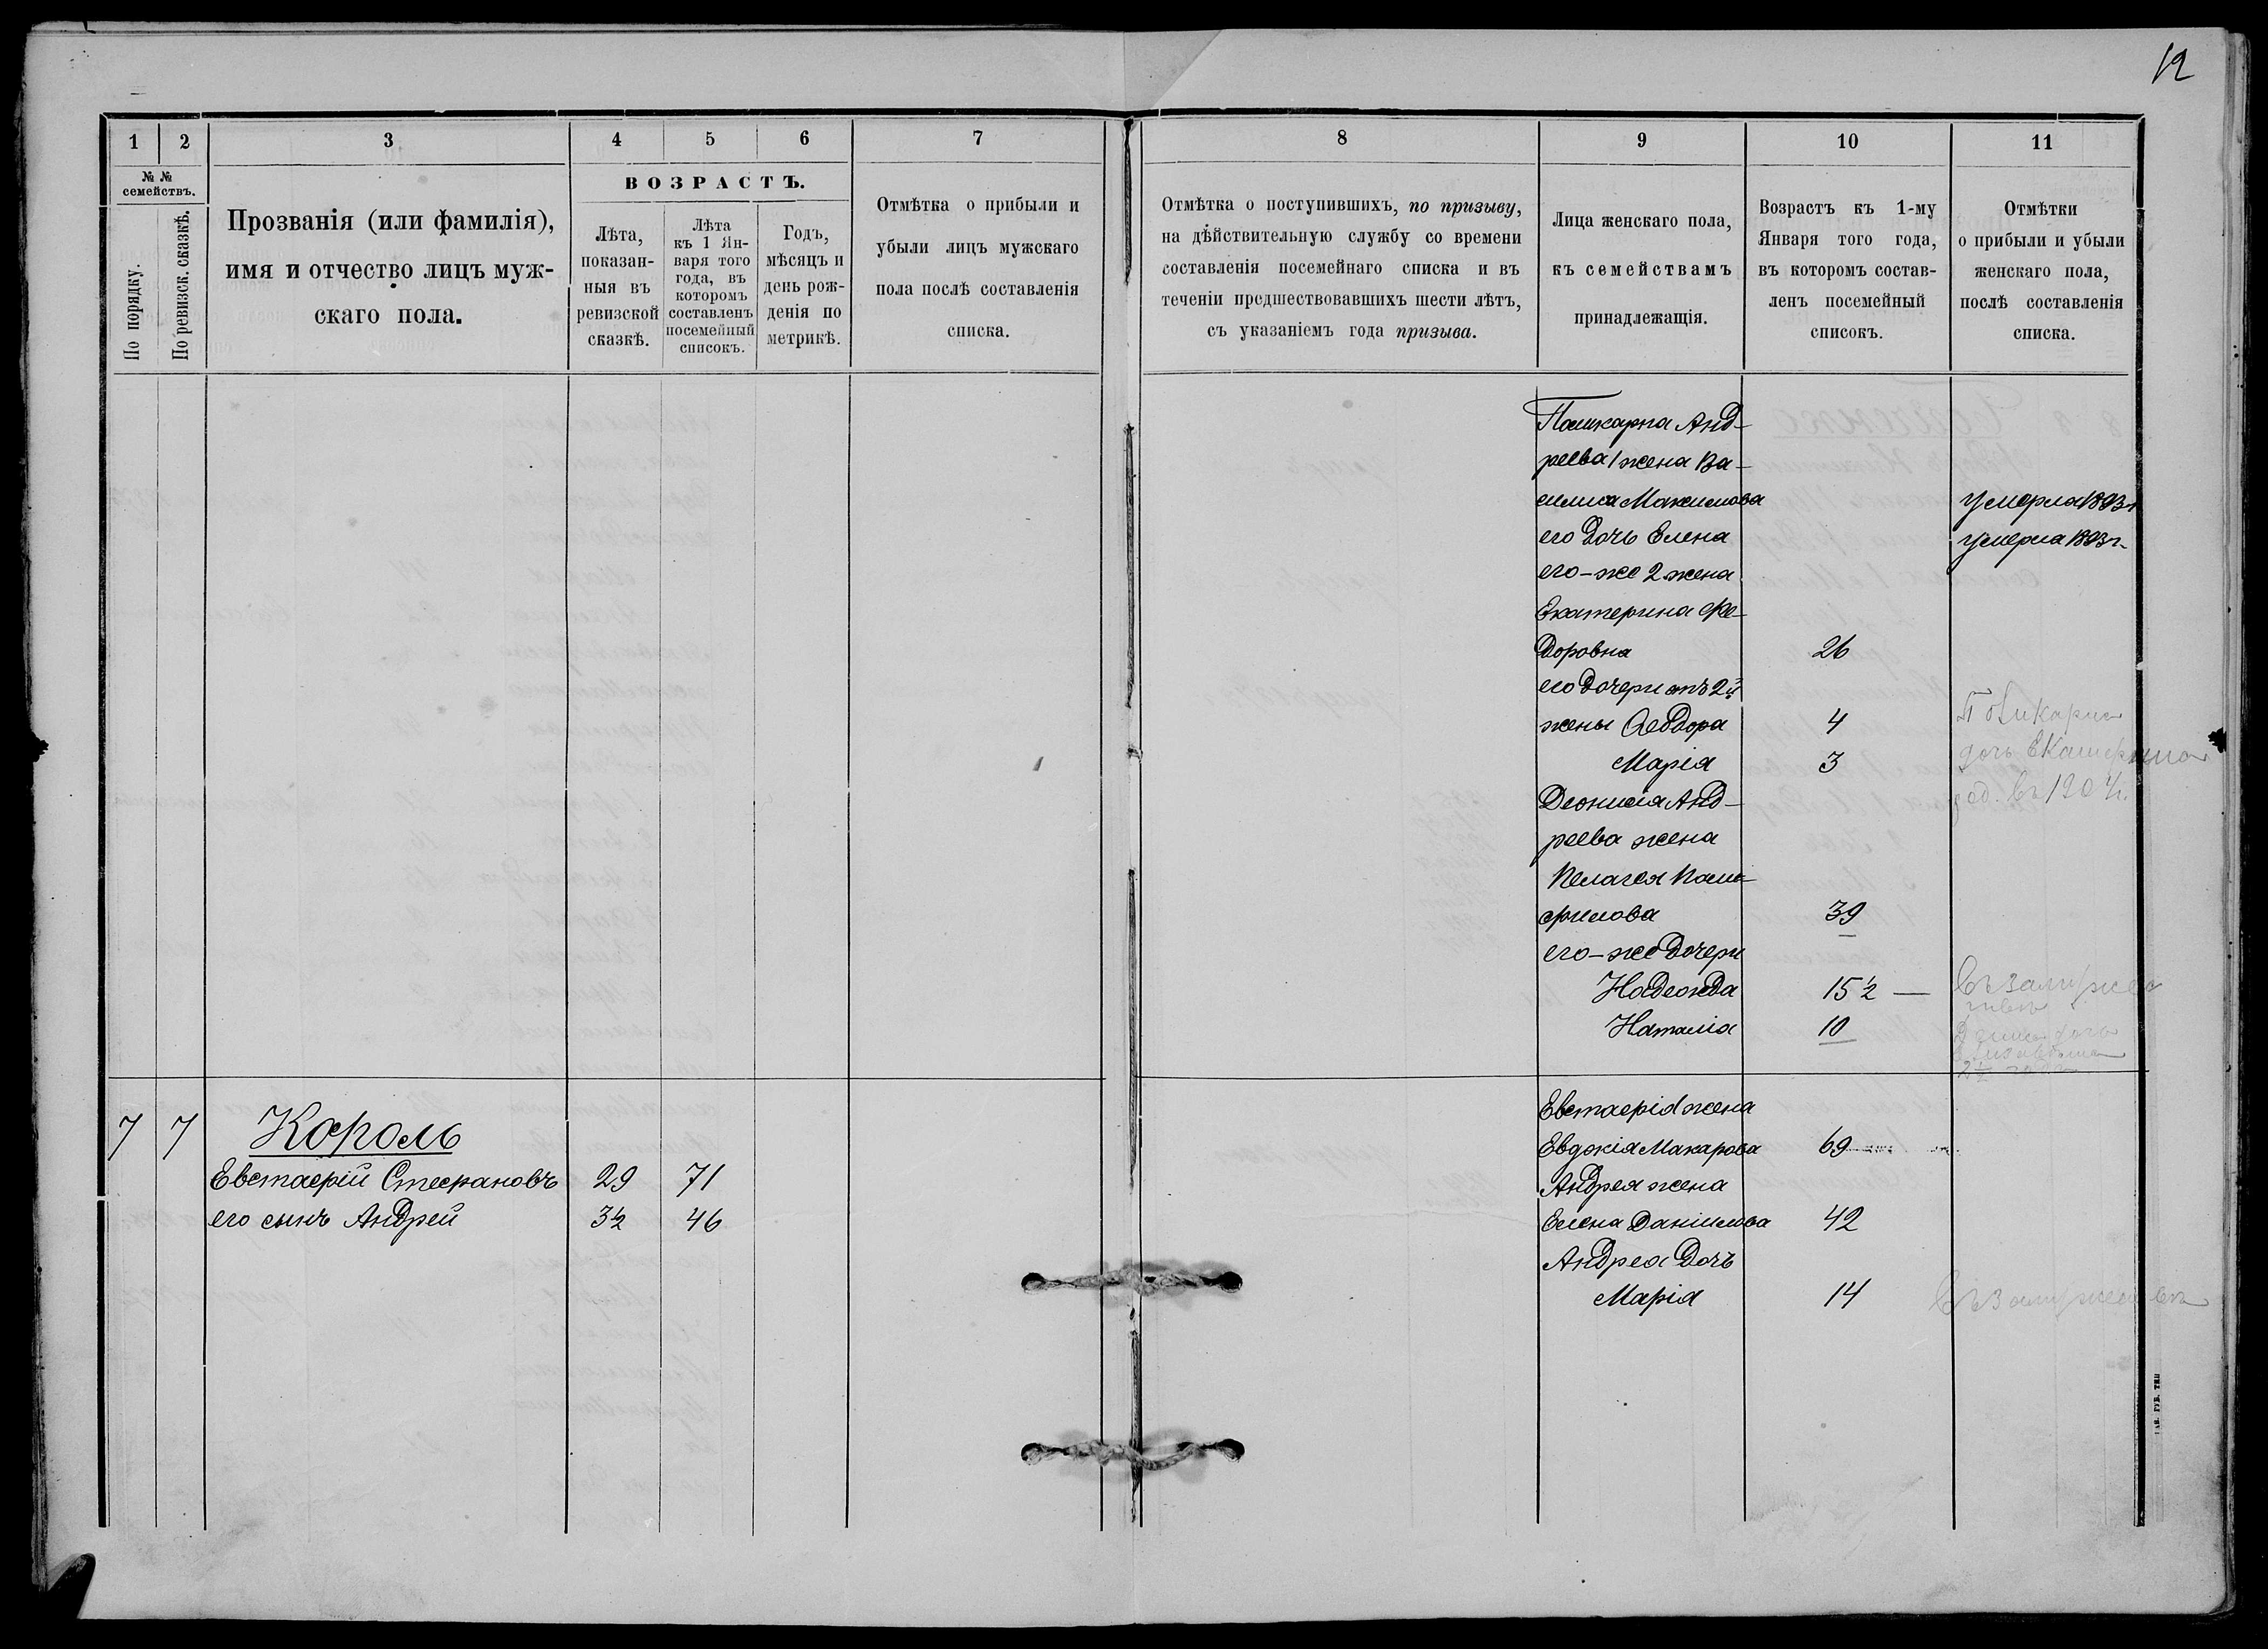 12
1
2
3
4
5
6
7
8
9
10
11
№ №
семействъ.
По порядку.
По ревизск. сказкѣ.
Прозванія (или фамилія),
имя и отчество лицъ муж-
скаго пола.
ВОЗРАСТЪ.
Лѣта,
показан-
ныя въ
ревизской
сказкѣ.
Лѣта
къ 1 Ян-
варя того
года, въ
которомъ
составленъ
посемейный
списокъ.
Годъ,
мѣсяцъ и
день рож-
денія по
метрикѣ.
Отмѣтка о прибыли и
убыли лицъ мужскаго
пола послѣ составленія
списка.
Отмѣтка о поступившихъ, по призыву,
на дѣйствительную службу со времени
составленія посемейнаго списка и въ
теченіи предшествовавшихъ шести лѣтъ,
съ указаніемъ года призыва.
Лица женскаго пола,
къ семействамъ
принадлежащія.
Возрастъ къ 1-му
Января того года,
въ которомъ состав-
ленъ посемейный
списокъ.
Отмѣтки
о прибыли и убыли
женскаго пола,
послѣ составленія
списка.
Поликарпа Анд-
реева 1 жена Ва-
силиса Максимова умерла 1893 г.
его дочь Елена умерла 1893 г.
его-же 2 жена
Екатерина Фе-
доровна 26
его дочери отъ 2й
жены Феодора 4
Марія 3
Поликарпа
дочь Екатерина
род. въ 1904 г.
Деонисія Анд-
реева жена
Пелагея Пам-
филова 39
его-же дочери
Надежда 15½ — въ замужес
твѣ
Наталія 10
дочь
7 7 Король
Евстафій Стефановъ 29 71
его сынъ Андрей 3½ 46
Евстафія жена
Евдокія Макарова 69
Андрея жена
Елена Даніилова 42
Андрея дочь
Марія 14 въ замужествѣ